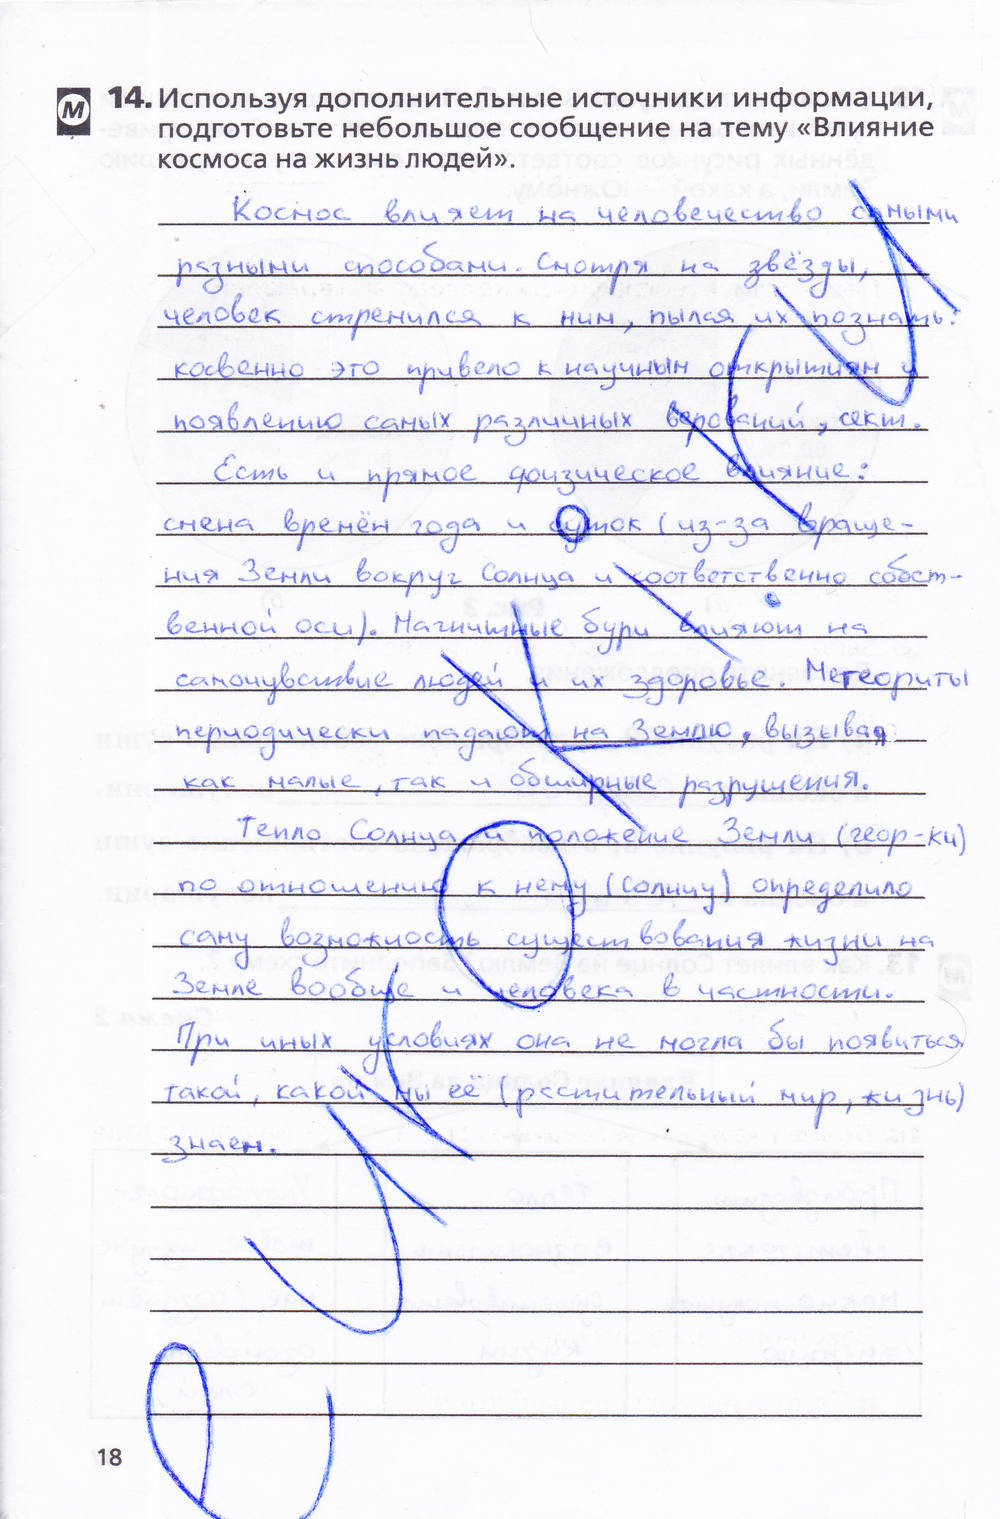 М 14. Используя дополнительные источники информации,
подготовьте небольшое сообщение на тему «Влияние
космоса на жизнь людей».
Космос влияет на человечество самыми
разными способами. Смотря на звёзды,
человек стремился к ним, пылая их познать.
косвенно это привело к научным открытиям и
появлению самых различных верований, сект.
Есть и прямое физическое влияние:
смена времён года и суток (из-за враще-
ния Земли вокруг Солнца и соответственно собст-
венной оси). Магнитные бури влияют на
самочувствие людей и их здоровье. Метеориты
периодически падают на Землю, вызывая
как малые, так и обширные разрушения.
Тепло Солнца и положение Земли (геор-ки)
по отношению к нему (Солнцу) определило
саму возможность существования жизни на
Земле вообще и человека в частности.
При иных условиях она не могла бы появиться
такой, какой мы её (растительный мир, жизнь)
знаем.
18